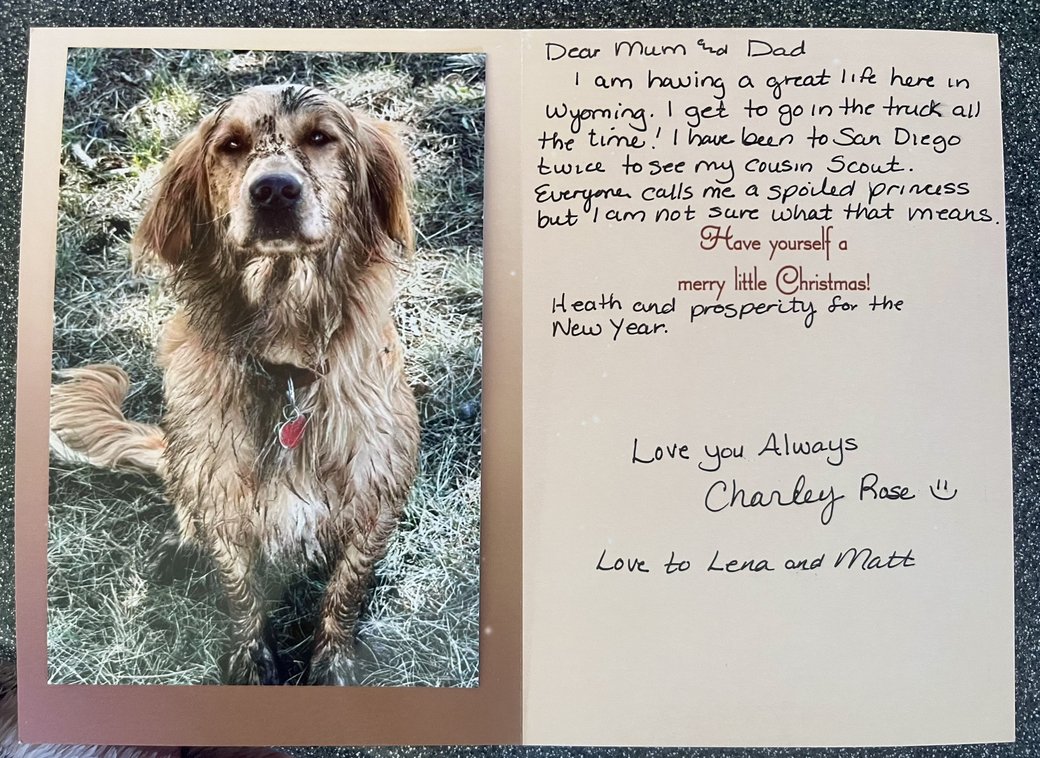 Dear Mum and Dad
I am having a great life here in
Wyoming. I get to go in the truck all
the time! I have been to San Diego
twice to see my cousin Scout.
Everyone calls me a spoiled princess
but I am not sure what that means.
Have yourself a
merry little Christmas!
Heath and prosperity for the
New Year.
Love you Always
Charley Rose
Love to Lena and Matt